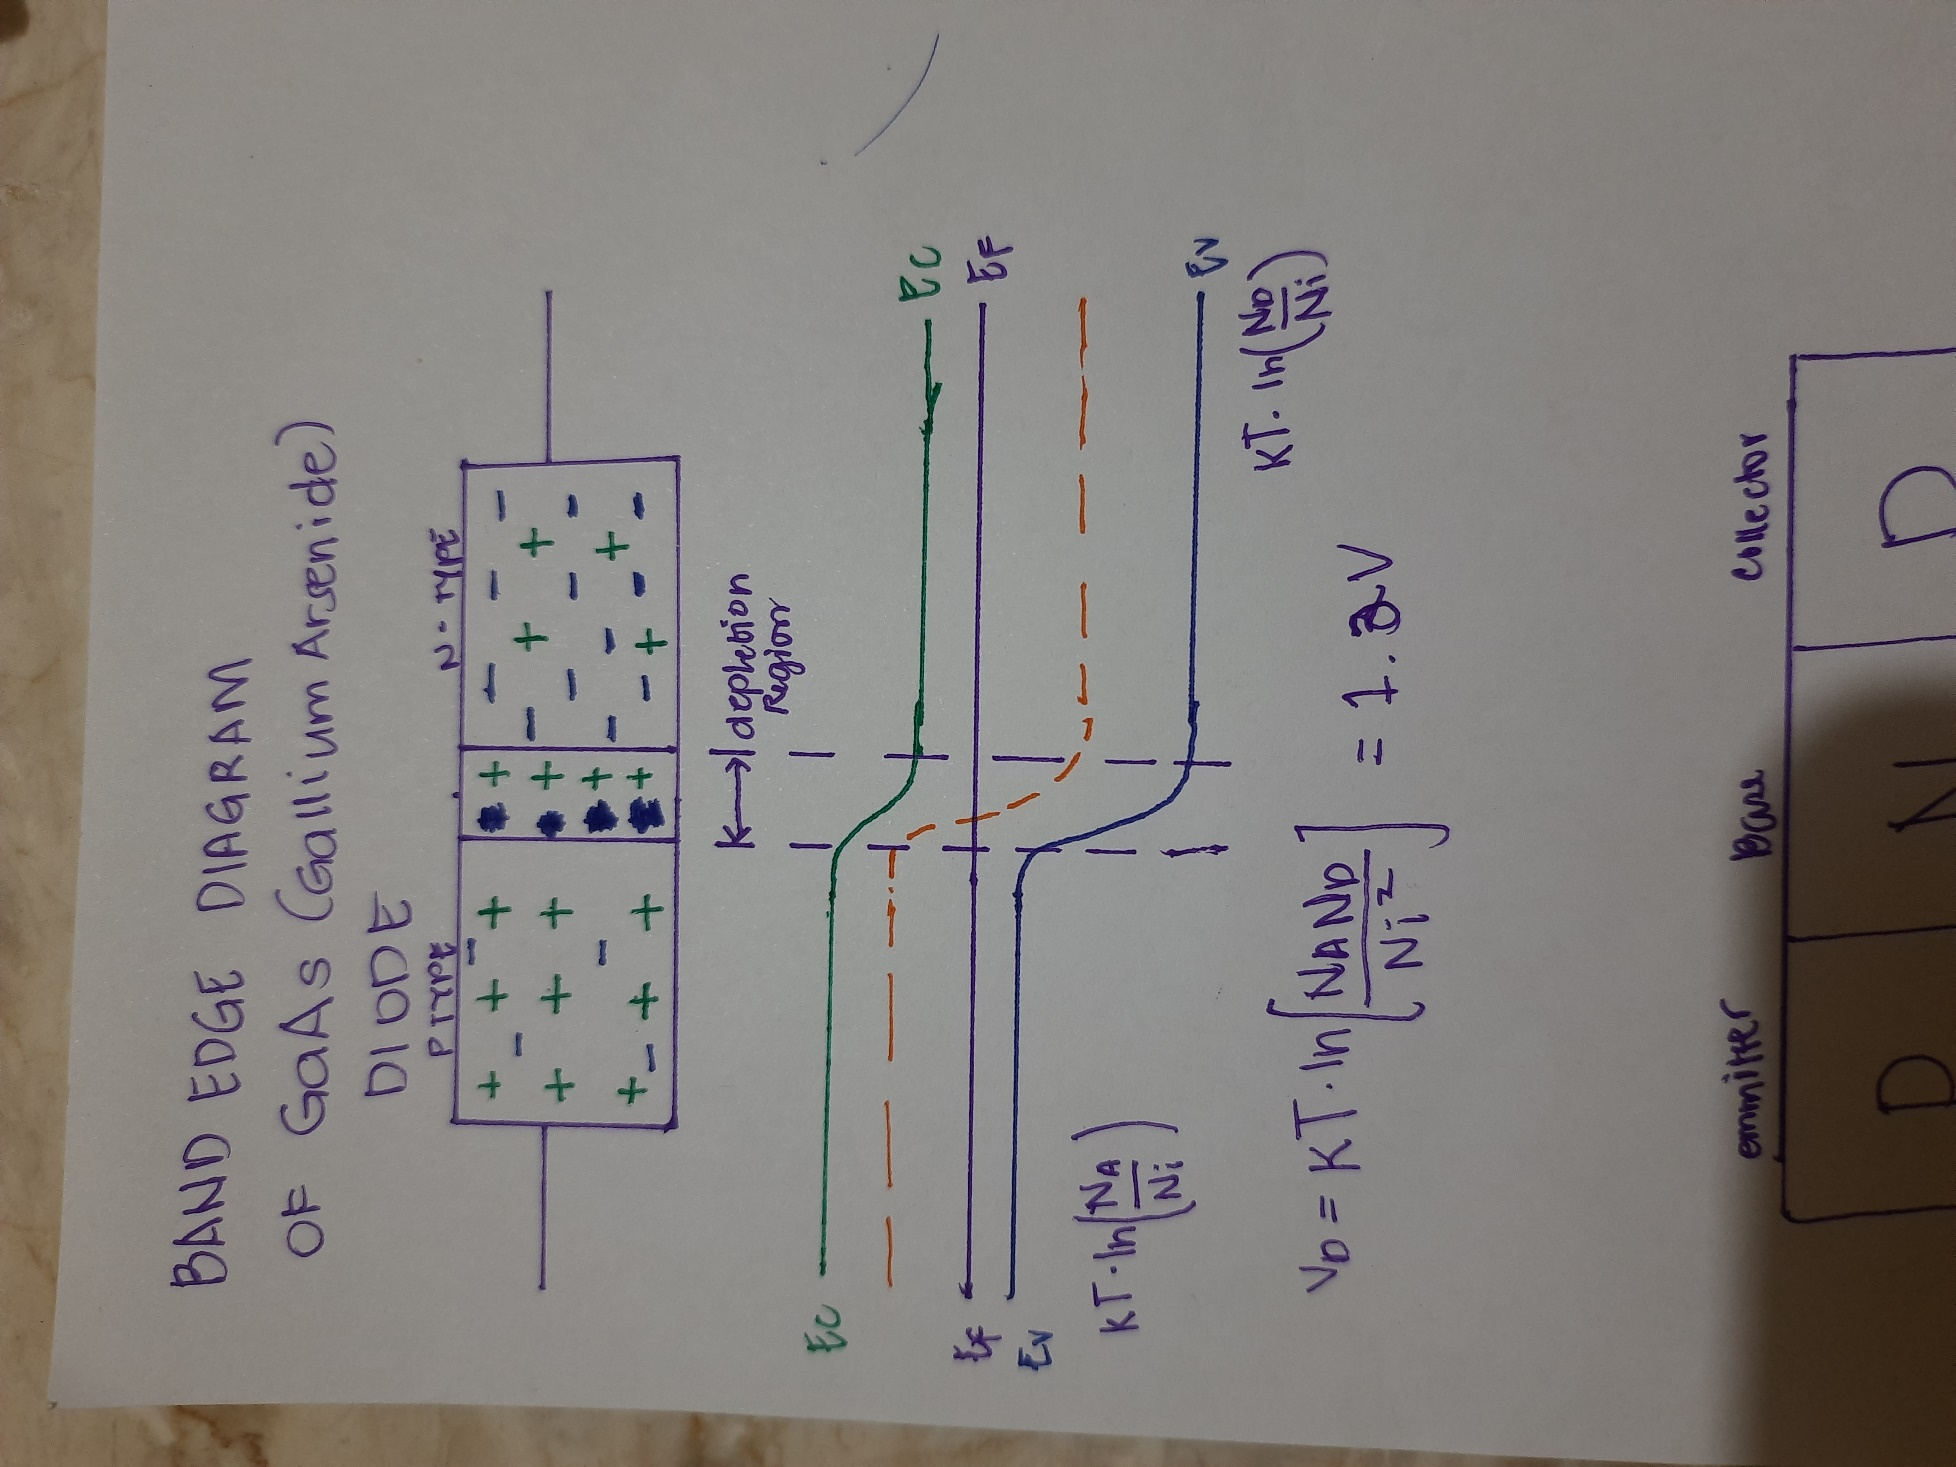 BAND EDGE DIAGRAM
OF GaAs (Gallium Arsenide)
DIODE
P TYPE
N-TYPE
depletion
Region
EC
EC
EF
EF
EV
EV
KT·ln(NA/Ni)
KT·ln(ND/Ni)
VD = KT·ln[NAND/Ni²] = 1.2V
emmitter Base collector
P N P